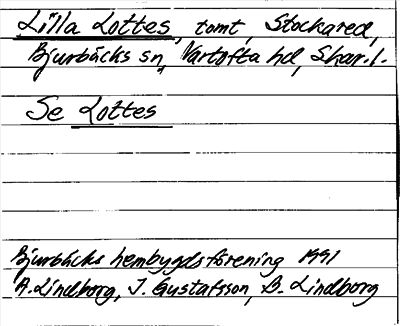 Lilla Lottes, tomt, Stockared,
Bjurbäcks sn, Vartofta hd, Skar.l.
Se Lottes
Bjurbäcks hembygdsförening 1991
A. Lindborg, J. Gustafsson, B. Lindborg